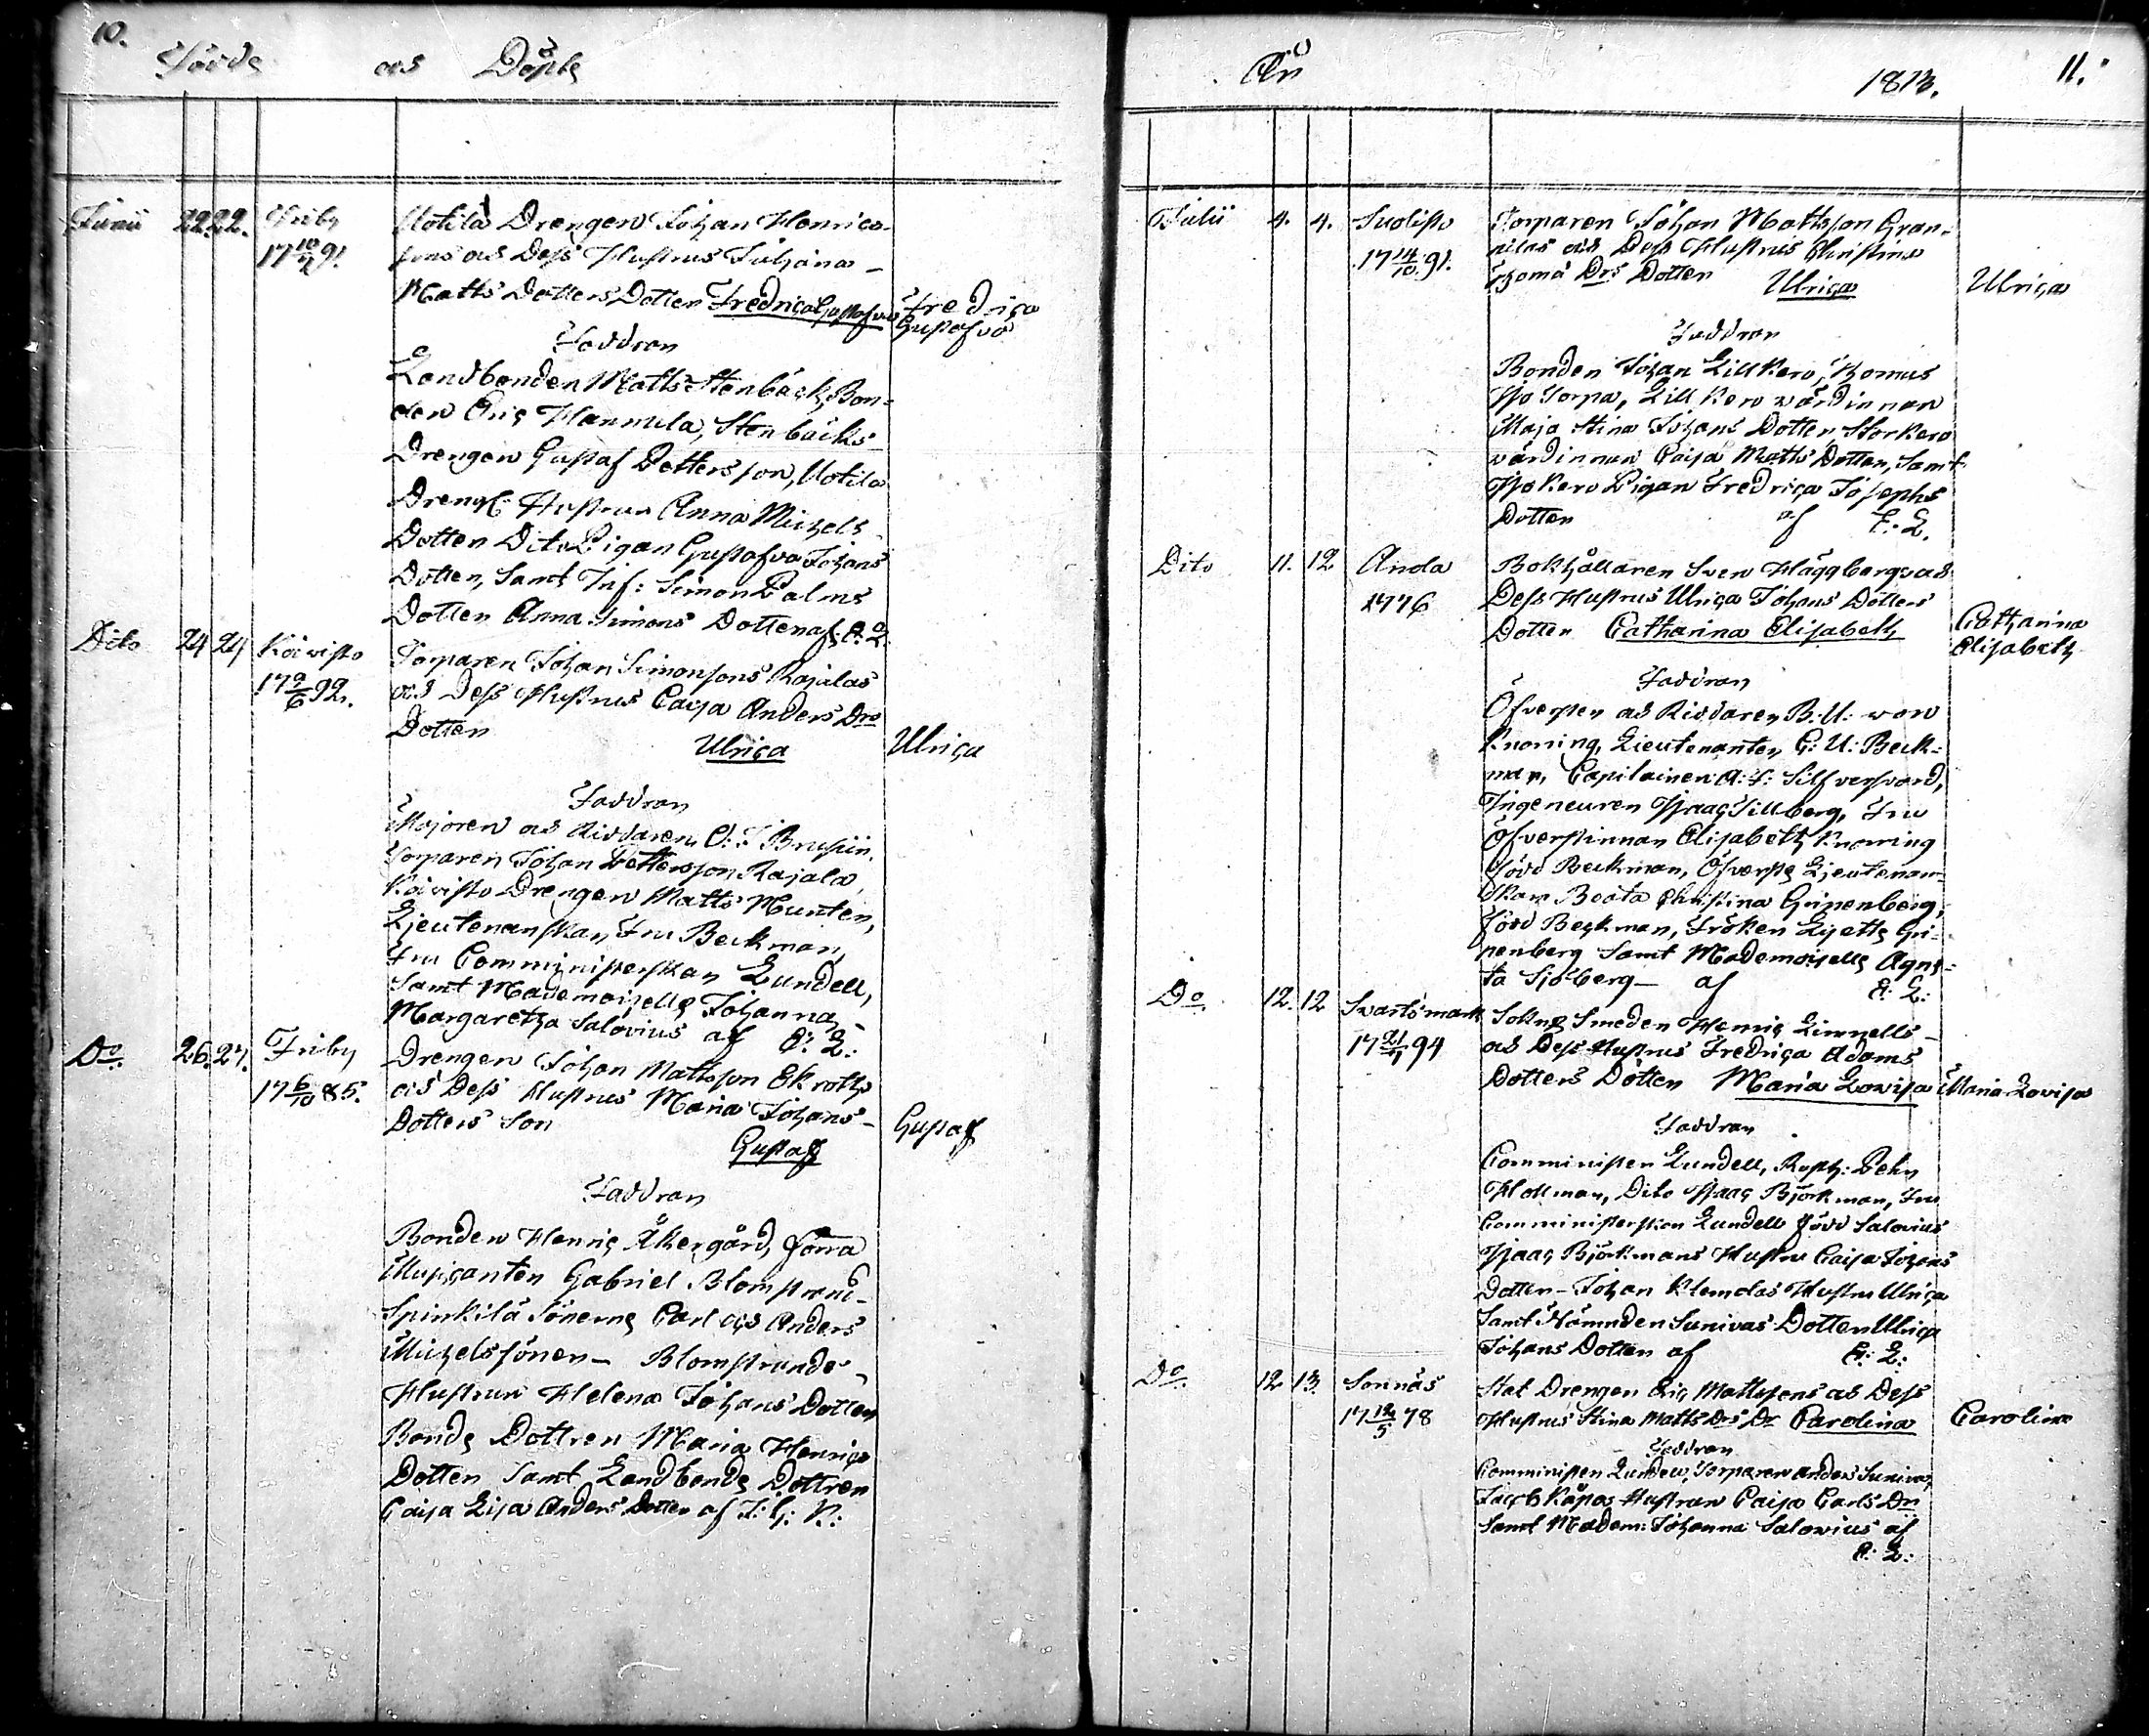 10.
Födde och Döpte
Junii 22. 22. Friby Uotila Drengen Johan Henrics-
17 10/4 91. sons och Dess Hustrus Johana
Matts Dotters Dotter Fredrica Gustafva Fredrica
Gustafva
Faddran
Landbonden Matts Stenbäck, Bon-
den Eric Hannula, Stenbäcks
Drengen Gustaf Pettersson, Uotila
Dreng: Hustrun Anna Michels
Dotter Dito Pigan Gustafva Johans
Dotter, Samt Inf: Simon Palms
Dotter Anna Simons Dotter af: E: L.
Dito 24 24 Koivisto Torparen Johan Simonsons Rajalas
17 9/6 92. och Dess Hustrus Caisa Anders Drs
Dotter Ulrica Ulrica
Faddran
Majoren och Riddaren O: F Brusiin,
Torparen Johan Pettersson Rajala,
Koivisto Drengen Matts Munter,
Lieutenanskan Fru Beckman,
Fru Comministerskan Lundell,
Samt Mademoiselle Johanna
Margaretha Salovius af E: L:
Do 26. 27. Friby Drengen Johan Mattsson Ekroths
17 6/10 85. och Dess Hustrus Maria Johans-
Dotters Son Gustaf Gustaf
Faddran
Bonden Henric Åkergård, förra
Musicanten Gabriel Blomstrand
Spinkilä Sönerne Carl och Anders
Michelssöner - Blomstrands
Hustrun Helena Johans Dotter
Bonde Dottren Maria Henrics
Dotter Samt Landbonde Dottren
Caisa Lisa Anders Dotter af J: G: R:
År 1813. 11.
Julii 4. 4. Suolisto Torparen Johan Mattsson Gran-
17 14/10 91. nilas och Dess Hustrus Christina
Thoma Drs Dotter Ulrica Ulrica
Faddran
Bonden Johan Lillkero, Thomas
Iso Torpa, Lillkero wärdinnan
Maja Stina Johans Dotter, Storkero
wärdinnan Caisa Matts Dotter, Samt
Isokero Pigan Fredrica Josephs
Dotter af E: L.
Dito 11. 12 Anola Bokhållaren Sven Häggbergs och
1776 Dess Hustrus Ulrica Johans Dotters
Dotter Catharina Elisabeth Catharina
Elisabeth
Faddran
Öfversten och Riddaren B: U: von
Knorring, Lieutenanten G: U: Beck-
man, Capitainen A: F: Silfversvärd,
Ingeneuren Isaac Tillberg, Fru
Öfverstinnan Elisabeth Knorring
född Beckman, Öfverste Lieutenan-
skan Beata Christina Gripenberg,
född Beckman, Fröken Lisette Gri-
penberg Samt Mademoiselle Agne-
ta Sjöberg - af E: L:
Do 12. 12 Svartsmark Sokne Smeden Henric Linnells
17 21/7 94 och Dess Hustrus Fredrica Adams
Dotters Dotter Maria Lovisa Maria Lovisa
Faddran
Comministern Lundell, Rusth: Pehr
Hollman, Dito Isaac Björkman, Fru
Comministerskan Lundell född Salovius
Isaac Björkmans Hustru Caisa Johans
Dotter - Johan Klemolas Hustru Ulrica
Samt Nämnden Sunivas Dotter Ulrica
Johans Dotter af E: L:
Do 12 13. Sonnäs Stat Drengen Eric Mattssons och Dess
17 12/5 78 Hustrus Stina Matts Drs Dr Carolina Carolina
Faddran
Comministern Lundell, Torparen Anders Suniva,
Jacob Käpas Hustrun Caisa Carls Dr
Samt Madem: Johanna Salovius af
E: L: